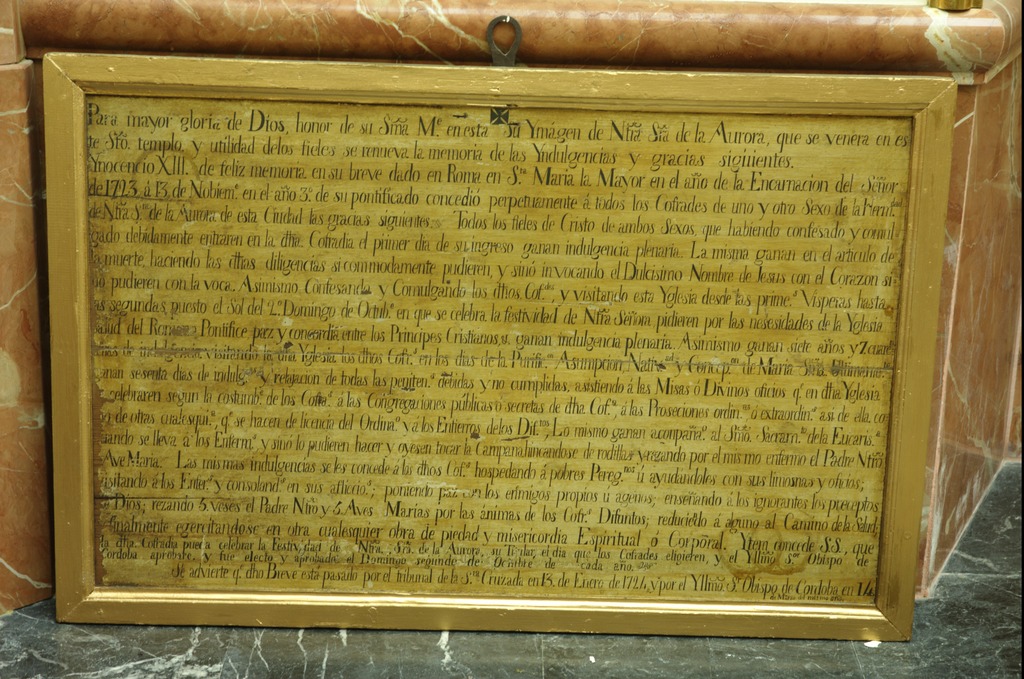 Para mayor gloria de Dios, honor de su Sma. Me. en esta Su Ymágen de Ntra Sra de la Aurora, que se venera en es
te Sto. templo, y utilidad delos fieles se renueva la memoria de las Yndulgencias y gracias siguientes.
Ynocencio XIII. de feliz memoria en su breve dado en Roma en Sta. Maria la Mayor en el año de la Encarnacion del Señor
de 1723. á 13. de Nobiemе. en el año 3º. de su pontificado concedió perpetuamente á todos los Cofrades de uno y otro Sexo de la Hermdad
de Ntra Sra. de la Aurora de esta Ciudad las gracias siguientes. Todos los fieles de Cristo de ambos Sexos, que habiendo confesado y comul
gado debidamente entráren en la dha. Cofradia el primer dia de su ingreso ganan indulgencia plenaria. La misma ganan en el articulo de
la muerte, haciendo las dhas diligencias si commodamente pudieren, y sinó invocando el Dulcisimo Nombre de Jesus con el Corazon si
no pudieren con la voca. Asimismo Confesando y Comulgando los dhos Cofdes, y visitando esta Yglesia desde las primeᵃ. Visperas hasta
las segundas, puesto el Sol del 2º. Domingo de Octubᵉ. en que se celebra la festividad de Ntra Señora pidieren por las nesesidades de la Yglesia
salud del Romano Pontifice paz y concordia entre los Principes Cristianos, ganan indulgencia plenaria. Asimismo ganan siete años y 7 cuare
nas de indulgencia, visitando la dha Yglesia los dhos Cofs. en los dias de la Purifn. Asumpcion, Natidad y Concepon de Maria Sma. Ultimamente
ganan sesenta dias de indulgª y relajacion de todas las peniteⁿ. debidas y no cumplidas, asistiendo á las Misas ó Divinos oficios q. en dha Yglesia
se celebraren segun la costumbᵉ. de los Cofrᵃ. á las Congregaciones públicas ó secretas de dha Cofª. á las Prosesiones ordinˢ ó extraordinˢ. asi de ella, co
mo de otras cualesquiᵃ. qᵉ se hacen de licencia del Ordinaº. y á los Entierros delos Diftos. Lo mismo ganan acompañaº. al Smo. Sacramto. dela Eucarisª
cuando se lleva á los Enferms. y sinó lo pudieren hacer y oyesen tocar la Campana hincandose de rodillas y rezando por el mismo enfermo el Padre Ntro
Ave Maria. Las mismas indulgencias se les concede á los dhos Cofˢ. hospedando á pobres Peregnos ú ayudandoles con sus limosnas y oficios;
visitando á los Enferˢ. y consolandº. en sus aflicciº.; poniendo paz con los enemigos propios ú agenos; enseñando á los ignorantes los preceptos
de Dios; rezando 5. veses el Padre Ntro y 5. Aves Marias por las ánimas de los Cofrˢ. Difuntos; reduciedo á aguno al Camino de la Salud
finalmente egercitandose en otra cualesquier obra de piedad y misericordia Espiritual ó Corporal. Ytem concede S.S., que
la dha. Cofradia pueda celebrar la Festividad de Ntra. Sra. de la Aurora, su Titular, el dia que los Cofrades eligieren, y el Yllmo Sor. Obispo de
Córdoba aprobáre, y fue electo y aprobado el Domingo segundo de Octubre de cada año.
Se advierte q. dho Breve está pasado por el tribunal de la Sta. Cruzada en 13. de Enero de 1724, y por el Yllmo. Sr. Obispo de Cordoba en 14
de Marzo del mismo año.